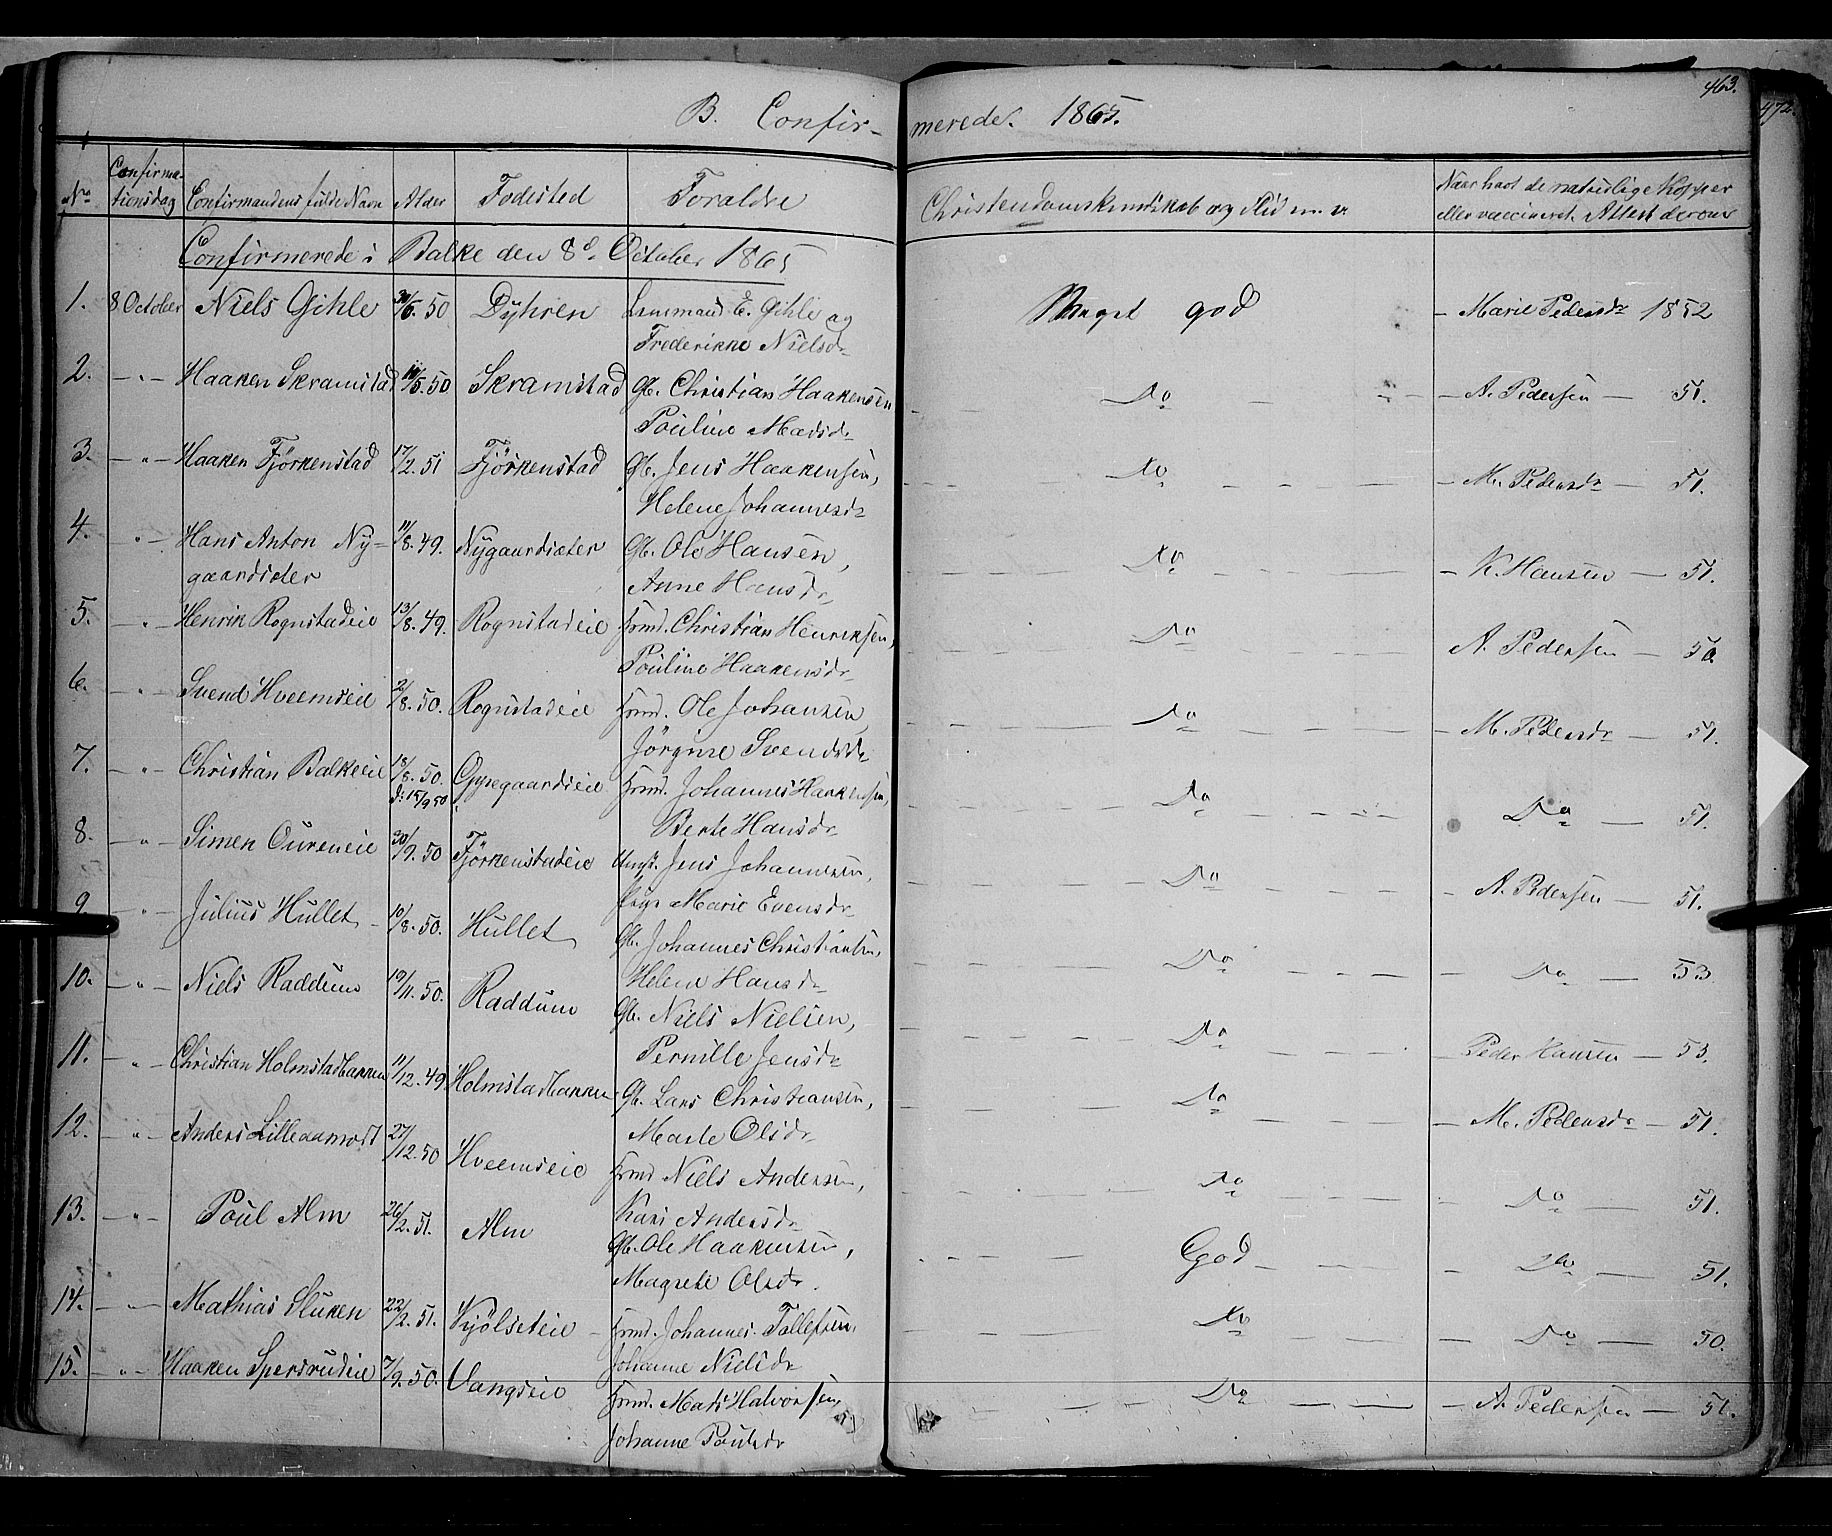 463.
472.
B. Confir-
merede. 1865.
No
Confirma-
tionsdag
Confirmandens fulde Navn
Alder
Fødested
Forældre
Christendomskundskab og Flid m. v.
Naar havt de naturlige Kopper
eller vaccineret. Attest derom
Confirmerede i Balke den 8de October 1865
1. 8 October Niels Gihle 30/6. 50 Dyhren Lensmand E. Gihle og Meget god - Marie Pedersdr 1852
Frederikke Nielsdr
2. - " - Haaken Skramstad 11/5. 50 Skramstad Gb. Christian Haakensen Do - A. Pedersen - 51.
Pouline Madsdr
3. - " - Haaken Fjörkenstad 17/2. 51 Fjörkenstad Gb. Jens Haakensen, Do - M. Pedersdr - 51.
Helene Johannesdr
4. " - Hans Anton Ny- 11/8. 49. Nygaardsæter Gb. Ole Hansen, Do - K. Hansen - 51.
gaardsæter Anne Hansdr
5. - " - Henrik Rognstadeie 13/8. 49. Rognstadeie Hmd. Christian Henriksen, Do A. Pedersen - 50
Pouline Haakensdr
6. - " - Svend Hveemseie 2/8. 50. Rognstadeie Hmd. Ole Johansen, Do - M. Pedersdr - 51.
Jörgine Svendsdr
7. - " - Christian Balkeeie 18/8. 50. Oppegaardseie Hmd. Johannes Haakensen, Do Do - 51.
d: 15/9 50 Berte Hansdr
8. - " - Simen Oureneie 30/9. 50 Fjörkenstadeie Ungk. Jens Johannesen, Do - A. Pedersen - 51.
Pige Marie Evensdr
9. - " - Julius Hullet - 10/8. 50. Hullet Gb. Johannes Christiansen, Do Do - 53
Helene Hansdr
10. - " - Niels Raddum 19/11. 50. Raddum Gb. Niels Nielsen, Do Peder Hansen - 53.
Pernille Jensdr
11. - " - Christian Holmstadbakken 11/12. 49 Holmstadbakken Gb. Lars Christiansen, Do - M. Pedersdr - 51.
Marte Olsdr
12. - " - Anders Lilleaamodt 27/12. 50 Hveemseie Hmd Niels Andersen, Do - Do - 51.
Kari Andersdr
13. - " - Poul Alm 26/2. 51. Alm Gb. Ole Haakensen, God - Do - 51.
Magrete Olsdr.
14. - " - Mathias Sluken 22/2. 51. Kjölseteie - Hmd. Johannes Tollefsen, Do - Do - 50.
Johanne Nielsdr
15. - " - Haaken Spersrudeie 7/9. 50. Vangseie Hmd. Mats Halvorsen, Do - A. Pedersen - 51.
Johanne Poulsdr